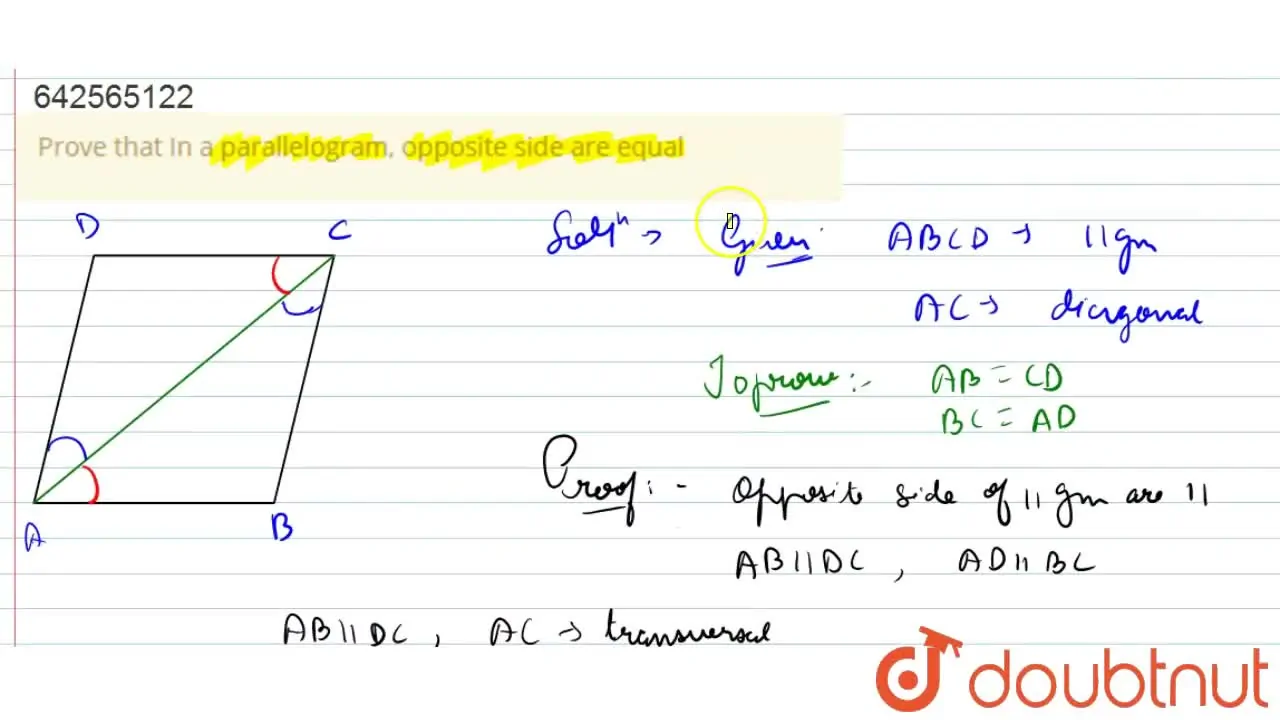 642565122
Prove that In a parallelogram, opposite side are equal
D C
Solⁿ → Given: ABCD → 11gm
AC → diagonal
To prove:- AB = CD
BC = AD
A B
Proof:- Opposite side of 11gm are 11
AB11DC, AD11BC
AB11DC, AC → transversal
doubtnut